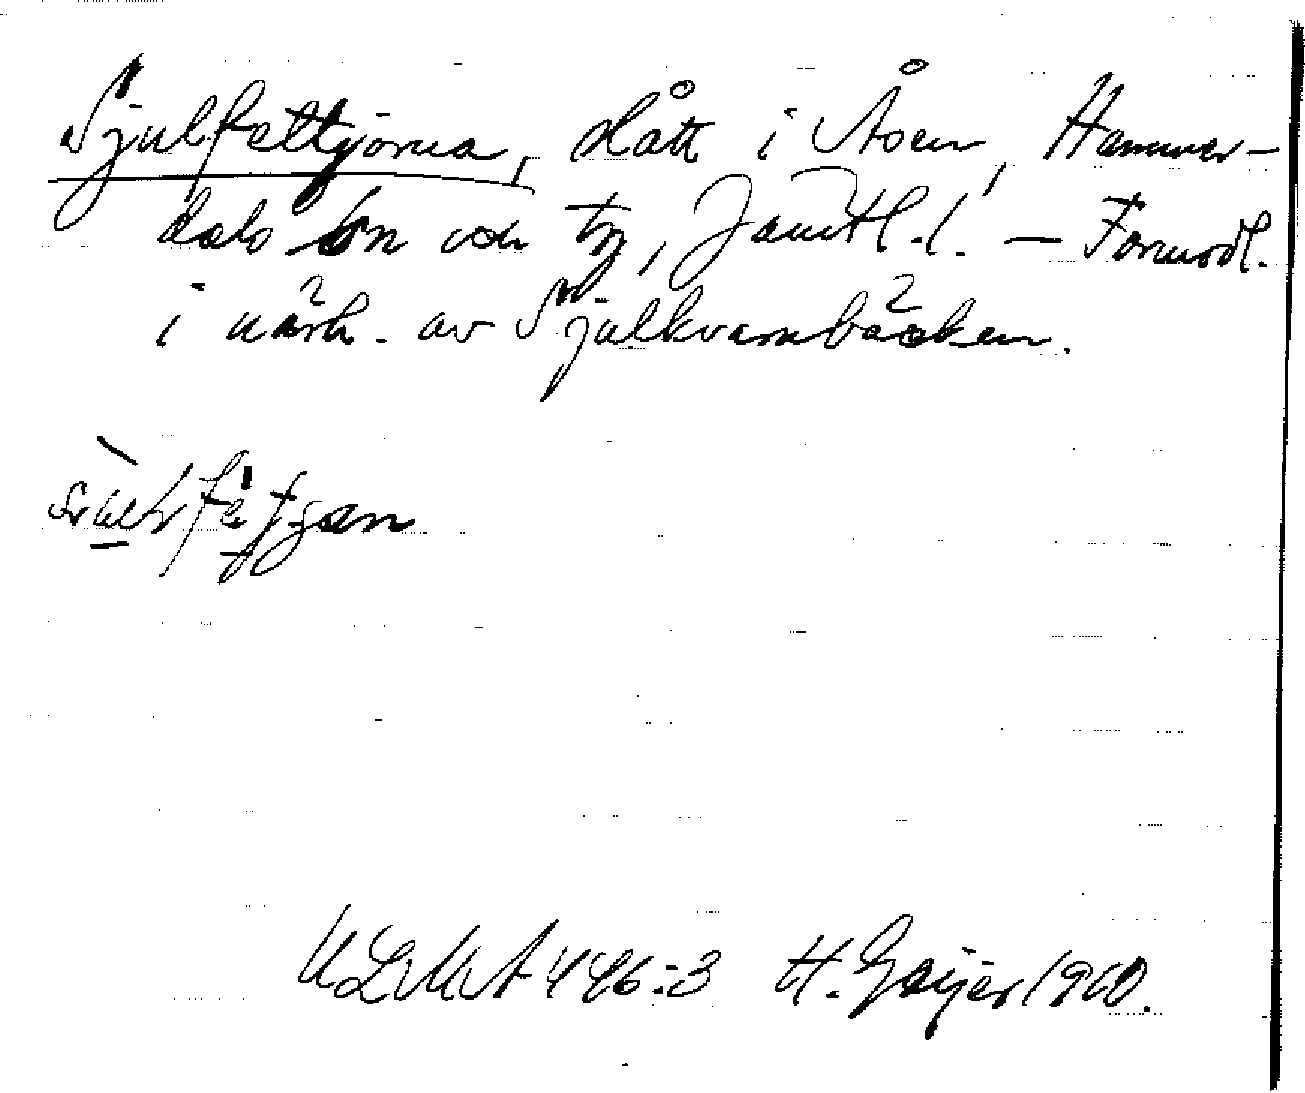 Sjulfettjörna, slått i Åsen, Hammer-
dals sn och tg, Jämtl. l. — Förmodl.
i närh. av Sjulkvarnbäcken.
ULMA 446:3 H. Geijer 1910.